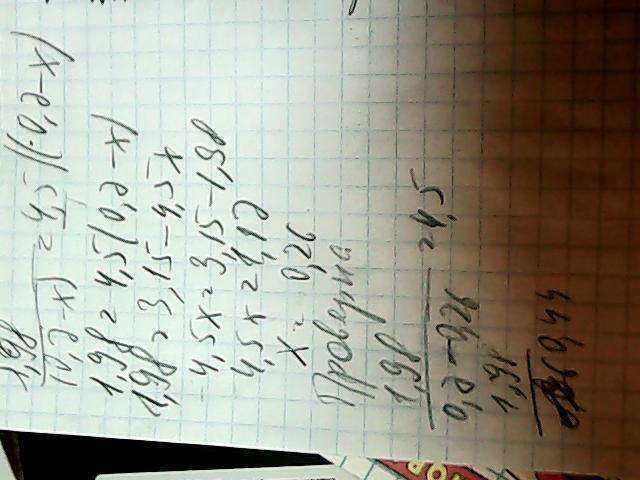 1,98
(0,7-x) = 4,5 |(·0,7-x)
1,98 = 4,5(0,7-x)
1,98 = 3,15-4,5x
4,5x = 3,15-1,98
4,5x = 1,17
x = 0,26
Проверка
1,98
0,7-0,26 = 4,5
1,98
0,44